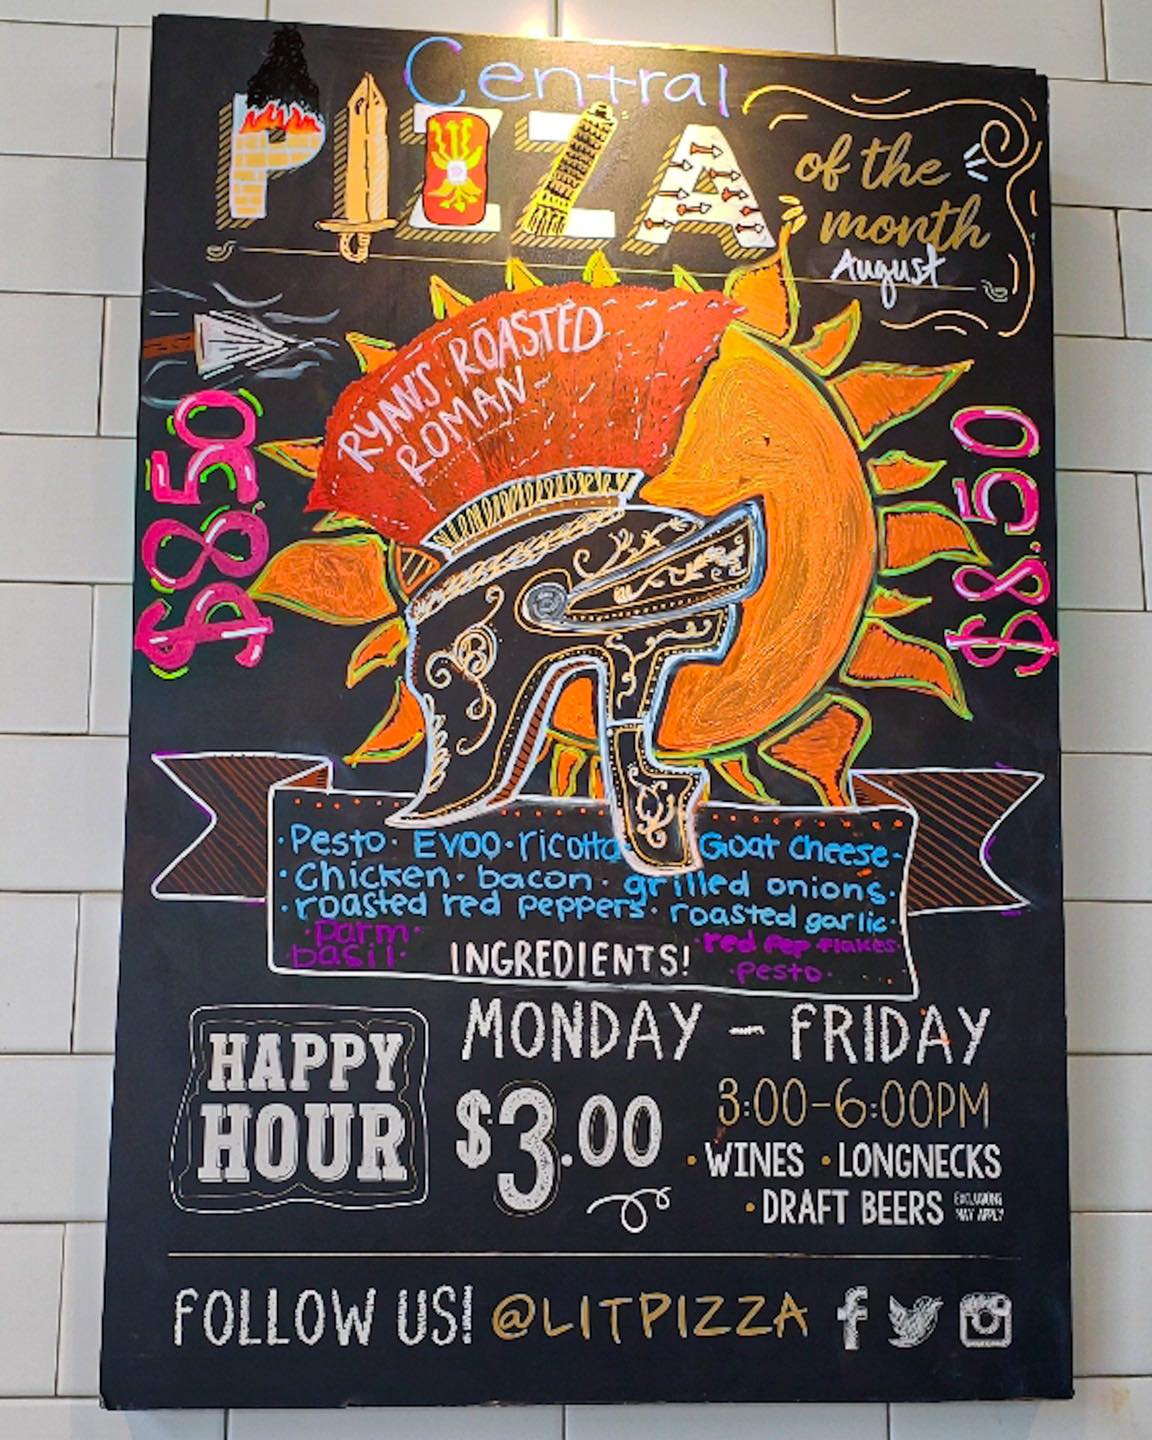 Central
PIZZA
of the
month
August
RYANS ROASTED
ROMAN
$8.50
$8.50
·Pesto· Evoo·ricotta Goat Cheese·
·Chicken·bacon·grilled onions·
·roasted red peppers·roasted garlic·
·parm· red pep flakes·
·basil· INGREDIENTS! ·pesto·
HAPPY
HOUR
MONDAY - FRIDAY
$3.00
3:00-6:00PM
·WINES ·LONGNECKS
·DRAFT BEERS EXCLUSIONS
MAY APPLY
FOLLOW US! @LITPIZZA